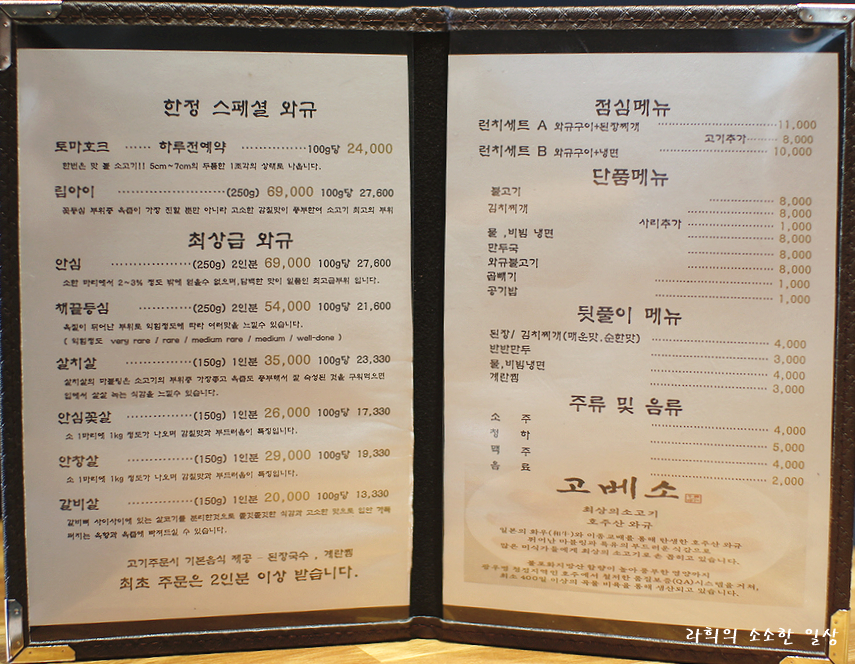 한정 스페셜 와규
토마호크 ······ 하루전예약 ················100g당 24,000
한번은 맛 볼 소고기!! 5cm~7cm의 두툼한 1조각의 상태로 나옵니다.
립아이 ··························(250g) 69,000 100g당 27,600
꽃등심 부위중 육즙이 가장 진할 뿐만 아니라 고소한 감칠맛이 풍부한여 소고기 최고의 부위
최상급 와규
안심 ····················(250g) 2인분 69,000 100g당 27,600
소한 마리에서 2~3% 정도 밖에 얻을수 없으며,담백한 맛이 일품인 최고급부위 입니다.
채끝등심 ····················(250g) 2인분 54,000 100g당 21,600
육질이 뛰어난 부위로 익힘정도에 따라 여러맛을 느낄수 있습니다.
( 익힘정도 very rare / rare / medium rare / medium / well-done )
살치살 ····················(150g) 1인분 35,000 100g당 23,330
살치살의 마블링은 소고기의 부위중 가장좋고 육즙도 풍부해서 잘 숙성된 것을 구워먹으면
입에서 살살 녹는 식감을 느낄수 있습니다.
안심꽃살 ················(150g) 1인분 26,000 100g당 17,330
소 1마리에 1kg 정도가 나오며 감칠맛과 부드러움이 특징입니다.
안창살 ················(150g) 1인분 29,000 100g당 19,330
소 1마리에 1kg 정도가 나오며 감칠맛과 부드러움이 특징입니다.
갈비살 ················(150g) 1인분 20,000 100g당 13,330
갈비뼈 사이사이에 있는 살코기를 분리한것으로 쫄깃쫄깃한 식감과 고소한 맛으로 입안 가득
퍼지는 육향과 육즙에 빠져드실 수 있습니다.
고기주문시 기본음식 제공 - 된장국수 , 계란찜
최초 주문은 2인분 이상 받습니다.
점심메뉴
런치세트 A 와규구이+된장찌개 ····················11,000
고기추가 ············ 8,000
런치세트 B 와규구이+냉면 ···················· 10,000
단품메뉴
불고기 ···················· 8,000
김치찌개 ···················· 8,000
사리추가 ············ 1,000
물 ,비빔 냉면 ···················· 8,000
만두국 ···················· 8,000
와규불고기 ···················· 8,000
곱빼기 ···················· 1,000
공기밥 ···················· 1,000
뒷풀이 메뉴
된장/ 김치찌개(매운맛.순한맛) ···················· 4,000
반반만두 ···················· 3,000
물,비빔냉면 ···················· 4,000
계란찜 ···················· 3,000
주류 및 음류
소 주 ···················· 4,000
청 하 ···················· 5,000
맥 주 ···················· 4,000
음 료 ···················· 2,000
고베소
최상의소고기
호주산 와규
일본의 화우(和牛)와 이종교배를 통해 탄생한 호주산 와규
뛰어난 마블링과 특유의 부드러운 식감으로
많은 미식가들에게 최상의 소고기로 손 꼽히고 있습니다.
불포화지방산 함량이 높아 풍부한 영양까지
광우병 청정지역인 호주에서 철저한 품질보증(QA)시스템을 거쳐,
최소 400일 이상의 곡물 비육을 통해 생산되고 있습니다.
라희의 소소한 일상